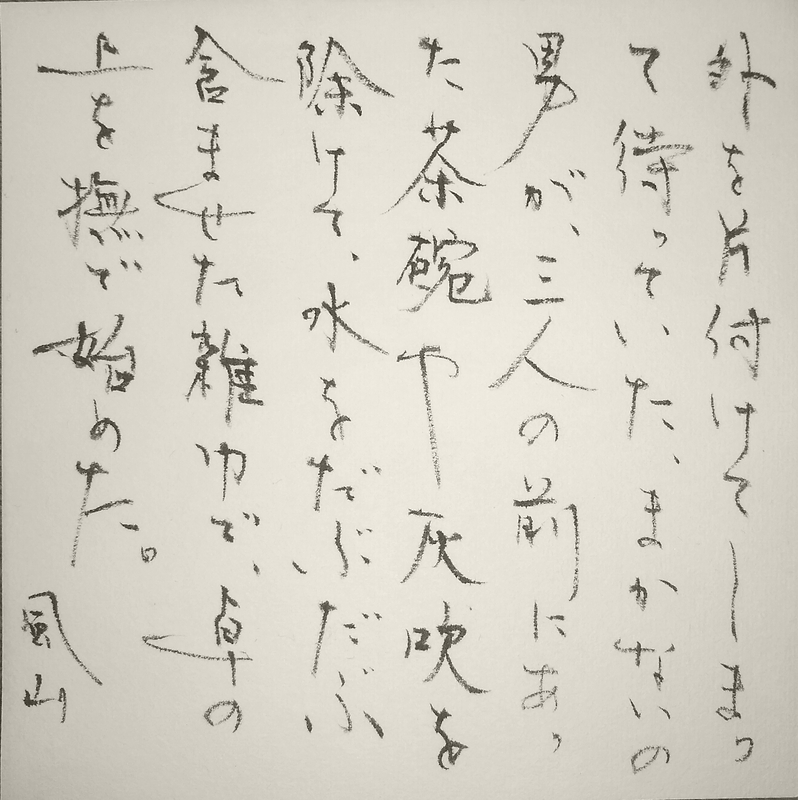 外を片付けてしまつ
て待つていた、まかないの
男が、三人の前にあつ
た茶碗や灰吹を
除けて、水をだぶだぶ
含ませた雑巾で、卓の
上を撫で始めた。
風山